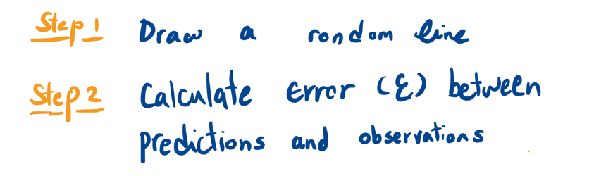 Step 1 Draw a random line
Step 2 Calculate Error (ε) between
predictions and observations